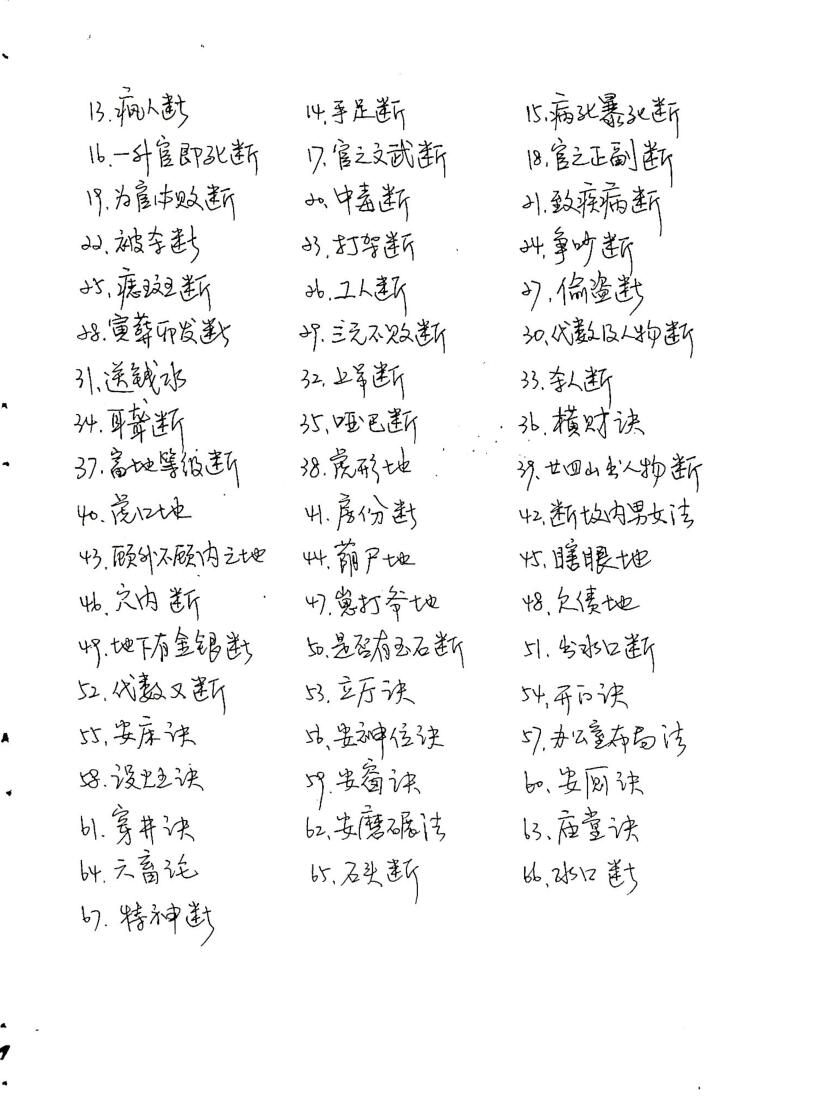 13.病人断 14.手足断 15.病死暴死断
16.一升官即死断 17.官之文武断 18.官之正副断
19.为官体败断 20.中毒断 21.致疾病断
22.被杀断 23.打架断 24.争吵断
25.痣斑断 26.工人断 27.偷盗断
28.寅葬卯发断 29.三元不败断 30.代数及人物断
31.送钱水 32.上吊断 33.杀人断
34.耳聋断 35.哑巴断 36.横财诀
37.富地等级断 38.虎形地 39.廿四山出人物断
40.虎口地 41.房份断 42.断坟内男女法
43.顾外不顾内之地 44.葫尸地 45.瞎眼地
46.穴内断 47.崽打爷地 48.欠债地
49.地下有金银断 50.是否有玉石断 51.出水口断
52.代数又断 53.立厅诀 54.开门诀
55.安床诀 56.安神位诀 57.办公室布局法
58.设灶诀 59.安窗诀 60.安厕诀
61.穿井诀 62.安磨碾法 63.庙堂诀
64.六畜论 65.石头断 66.水口断
67.特神断